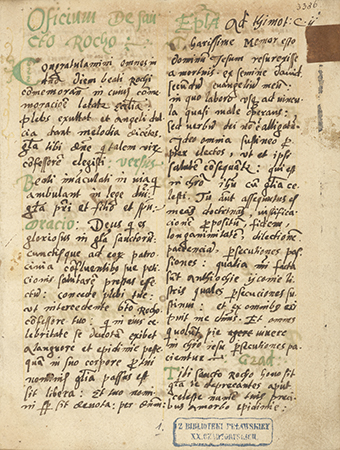 3336
Officium De san
cto Rocho
Congratulamini omnes in
diem beati Rochi
comemoramus in cuius com
moracione letatur
plebs exultat et angeli dul
cia dant melodia dicetes
gla tibi dne qtalem viru
cofessore elegisti versus
Beati imaculati in via q
ambulant in lege dni
gla pri et filio et spu
Oracio: Deus q es
gloriosus in gla sanctoru
cunctisque ad eoru patro
cinia cofluentibus sue peti
cionis salutare prestas effe
ctu: concede plebi tue
ut intercedente bto Rocho
cofessore tuo q in eius ce
lebritate se devota exibet
a languore et epidimie peste
quam in suo corpore p tui
nominis gla passus est
sit libera: Et tuo nom
ni sp sit devota: per dnm:
Epla Ad thimot: c ij
Charissime Memor esto
dominum Jesum resurexisse
a mortuis ex semine david
secundu evangeliu meu
in quo laboro usq ad vincu
la quasi male operans:
sed verbu dei no est aligatu
Ideo omnia sustineo p
pter electos, ut et ipsi
salute cosequatur: que est
in chro ihu cu gla ce
lesti: Tu aut assequutus es
meas doctrinas, institucio
ne, propositu, fidem,
longanimitate, dilectionem
paciencia, persecuciones pas
siones: qualia mi facta
sut antiochie yconie li
stris quales persecuciones su
stinui: et ex omnibus eri
puit me dnus. Et omnes
qui volut pie vivere
in chro ihu persecuciones pa
cientur Grad:
Tibi sancto Rocho honor sit
gta te deprecantes aput
celeste numen tuis preci
bus a morbo epidimie:
1.
Z BIBLIOTEKI PUŁAWSKIEJ
XX. CZARTORYSKICH.